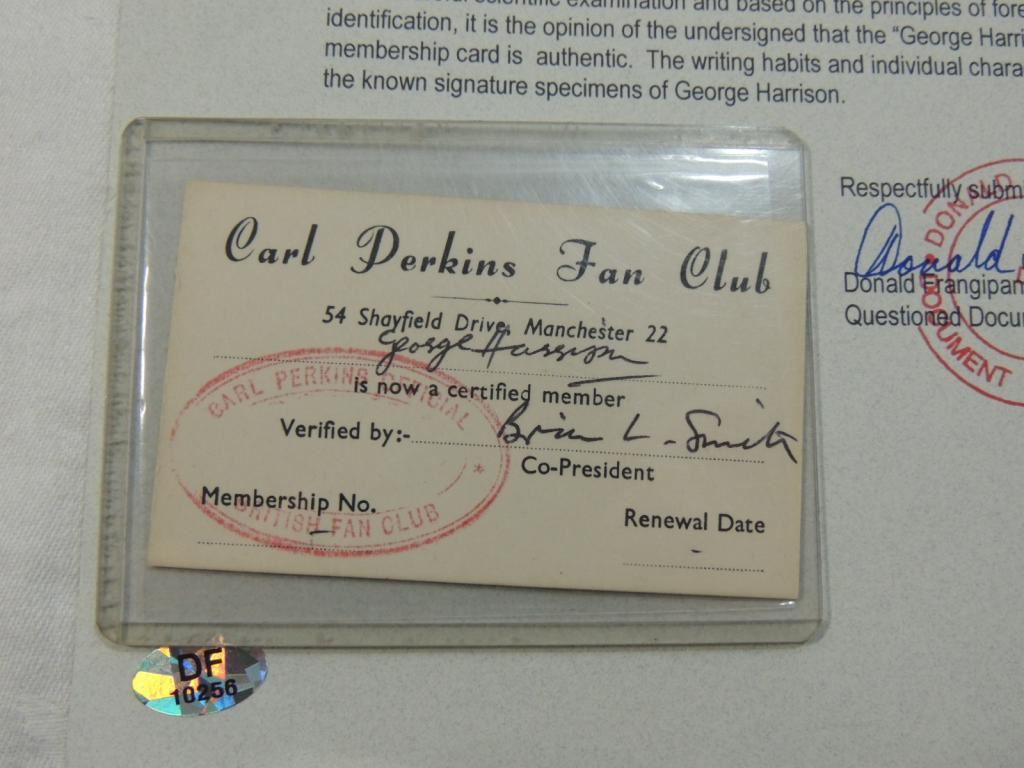 scientific examination and based on the principles of
identification, it is the opinion of the undersigned that the "George Harri
membership card is authentic. The writing habits and individual chara
the known signature specimens of George Harrison.
Respectfully subm
Donald
Donald Frangipan
Questioned Docu
DONALD
DOCUMENT
Carl Perkins Fan Club
54 Shayfield Drive, Manchester 22
George Harrison
is now a certified member
Verified by:- Brian L. Smith
Co-President
Membership No.
Renewal Date
CARL PERKINS OFFICIAL
BRITISH FAN CLUB
DF
10256